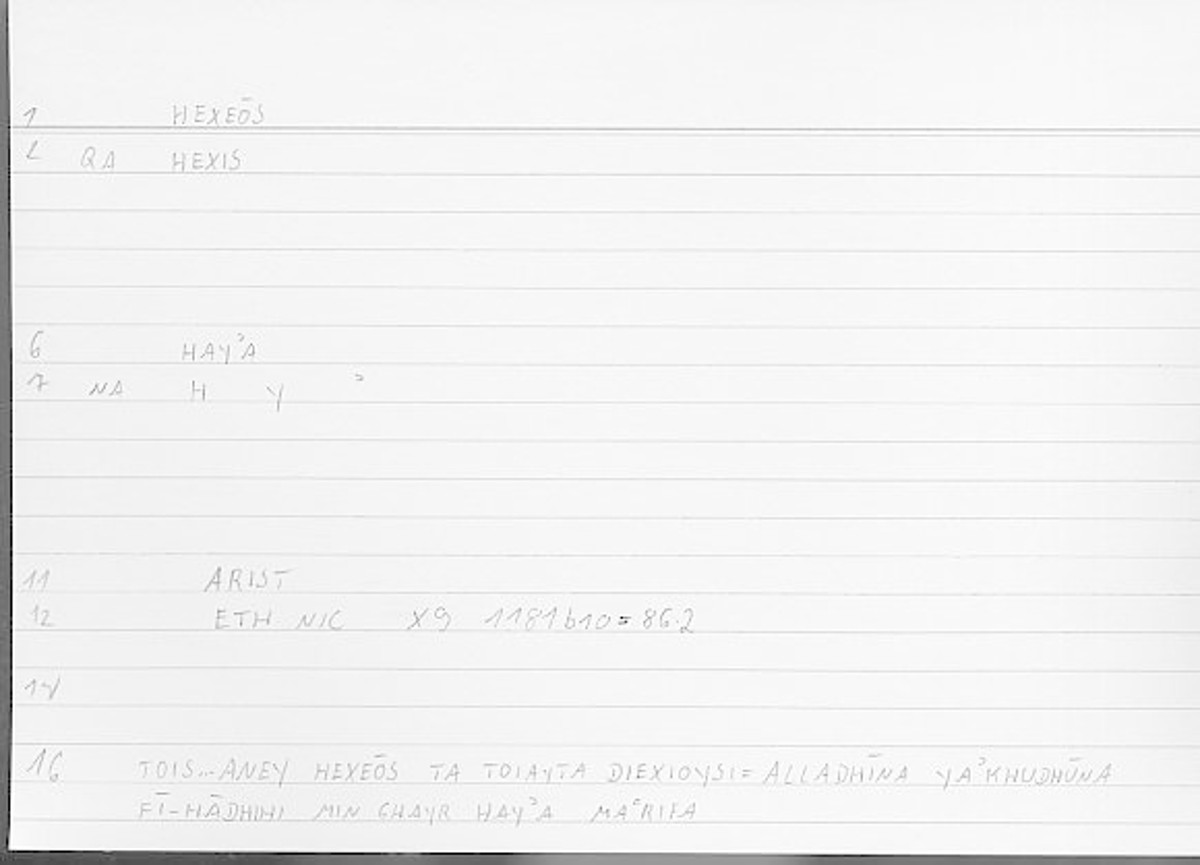 1 HEXEŌS
2 QA HEXIS
6 HAYʾA
7 NA H Y ʾ
11 ARIST
12 ETH NIC X9 1181b10=86.2
14
16 TOIS...ANEY HEXEŌS TA TOIAYTA DIEXIOYSI=ALLADHĪNA YAʾKHUDHŪNA
FĪ-HĀDHIHI MIN GHAYR HAYʾA MAʿRIFA